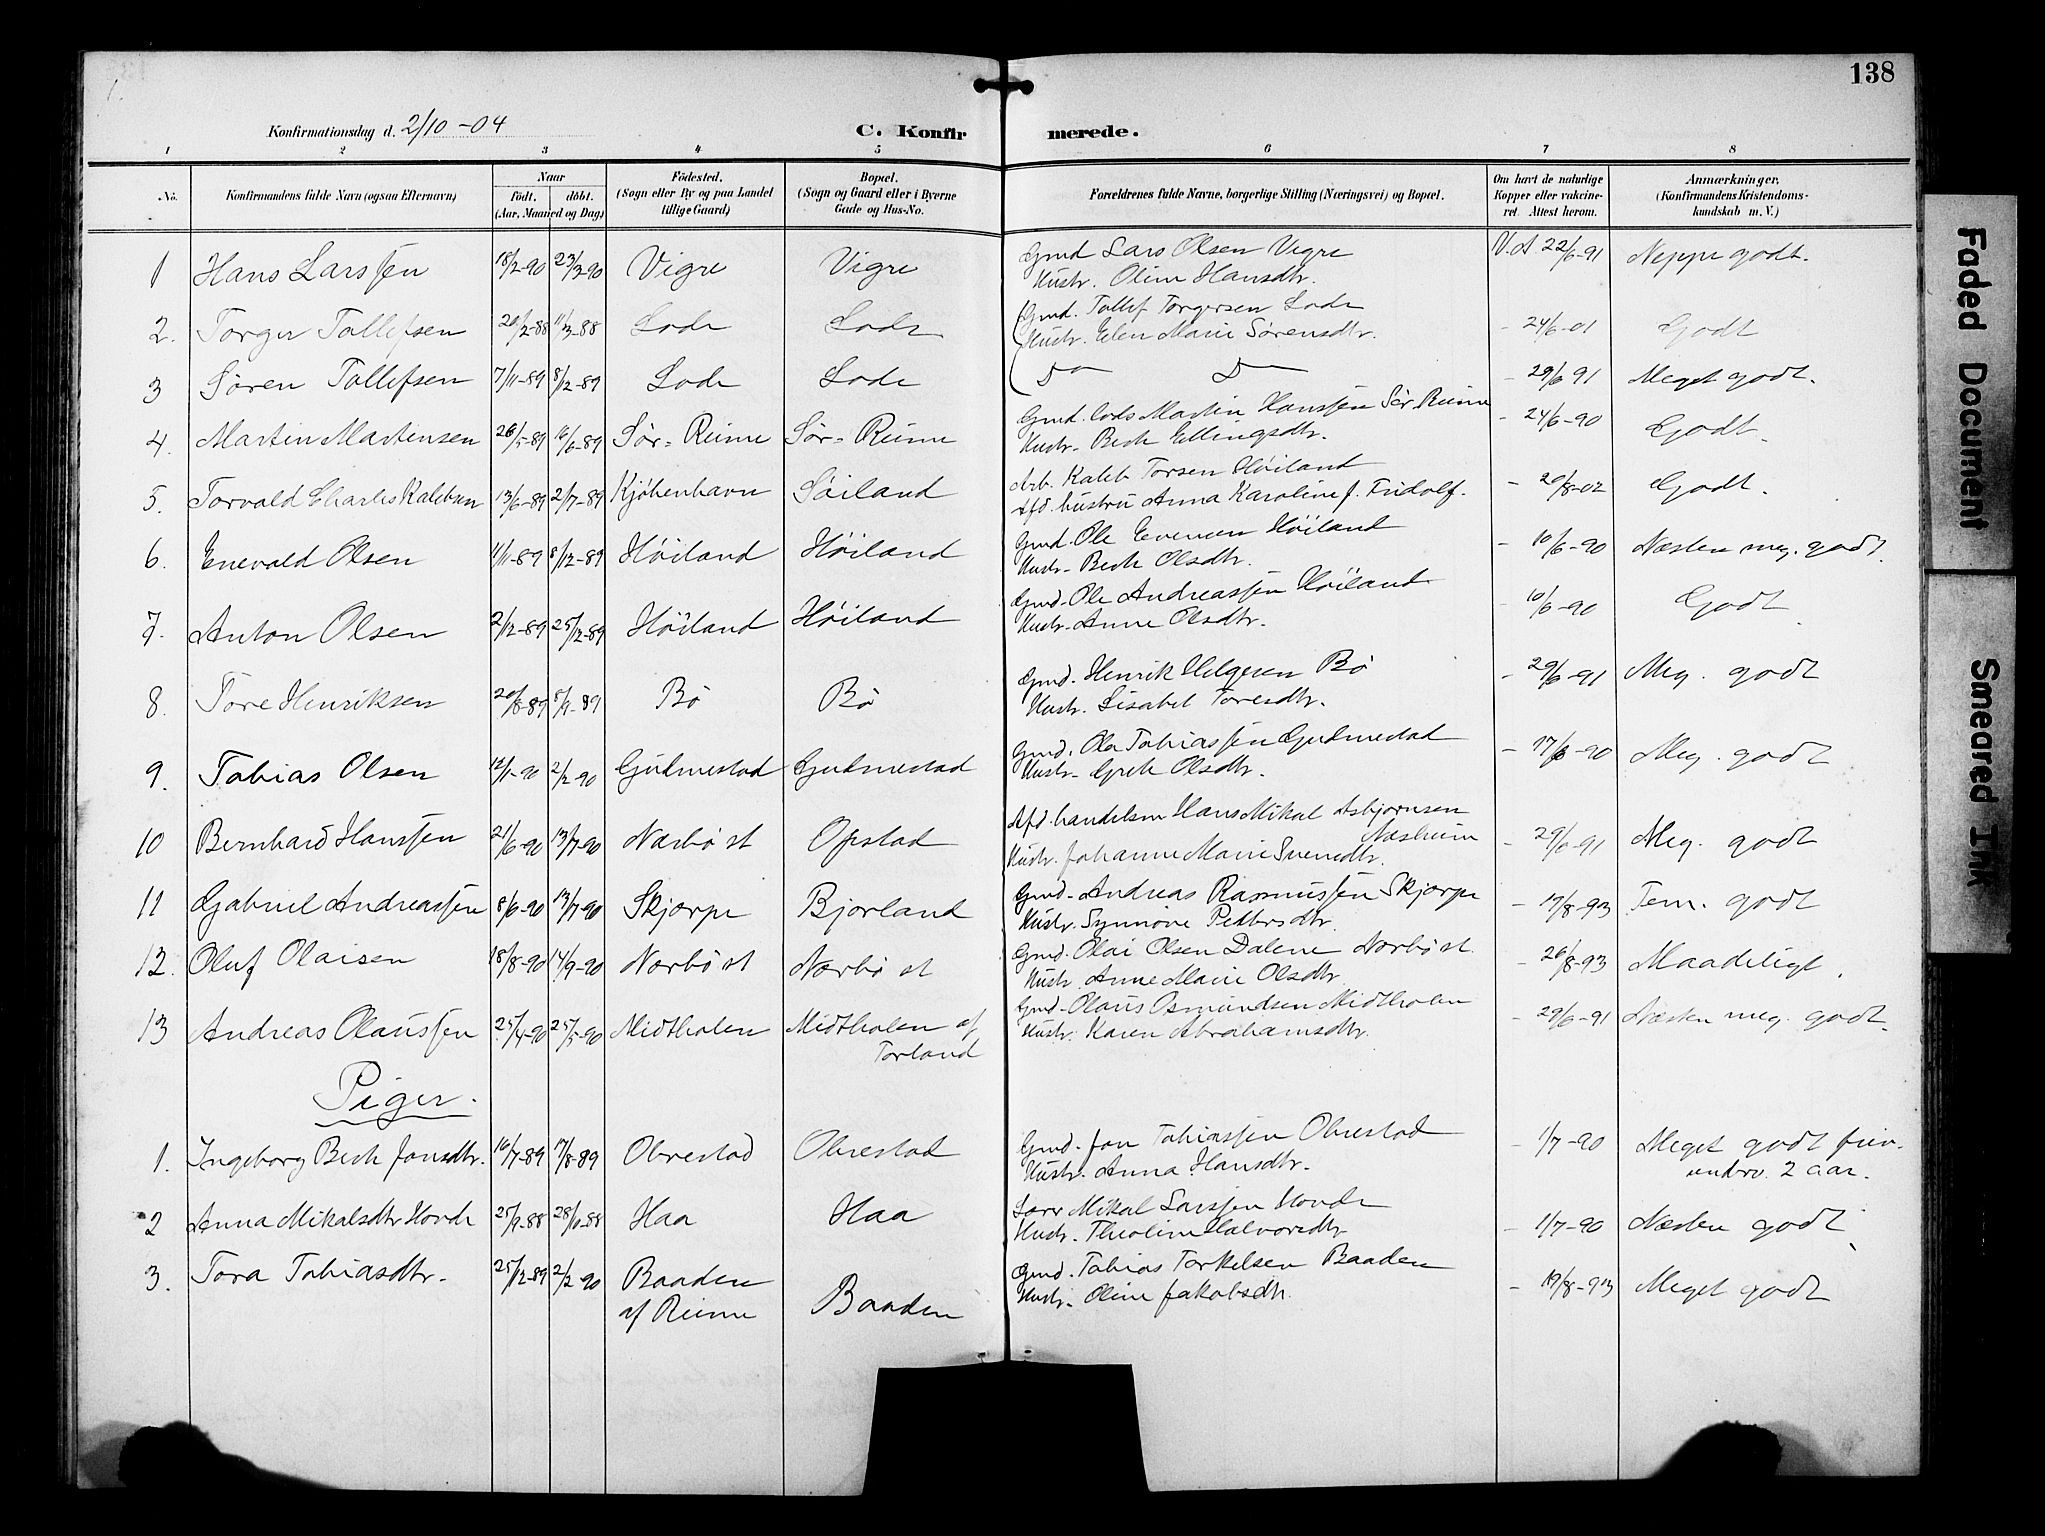 1.
138
Konfirmationsdag d. 2/10 -04
C. Konfirmerede.
1 2 3 4 5 6 7 8
No. Konfirmandens fulde Navn (ogsaa Efternavn) Naar født. døbt. (Aar, Maaned og Dag) Fødested. (Sogn eller By og paa Landet tillige Gaard) Bopæl. (Sogn og Gaard eller i Byerne Gade og Hus-No. Forældrenes fulde Navne, borgerlige Stilling (Næringsvei) og Bopæl. Om havt de naturlige Kopper eller vakcineret. Attest herom. Anmærkninger. (Konfirmandens Kristendomskundskab m. V.)
1 Hans Larssen 18/2-90 23/3-90 Vigre Vigre Gmd Lars Olsen Vigre V.A 22/6-91 Neppe godt.
Hustr. Oline Hansdtr.
2. Torger Tollefsen 20/2-88 11/3-88 Lode Lode Gmd. Tollef Torgersen Lode - 24/6-01 Godt
Hustr. Elen Marie Sørensdtr.
3 Søren Tollefsen 7/11-89 8/12-89 Lode Lode Do Do - 29/6 91 Meget godt.
4. Martin Martinsen 26/5-89 16/6-89 Sør-Reime Sør-Reime Gmd. Martin Hanssen Sør Reime - 24/6-90 Godt.
Hustr. Berte Ellingsdtr.
5. Torvald Charles Kalebsen 13/6-89 2/7-89 Kjøbenhavn Høiland Arb. Kaleb Torsen Høiland - 20/8-02 Godt.
Afd. hustru Anna Karoline f. Fridolf.
6. Enevald Olsen 11/11-89 8/12-89 Høiland Høiland Gmd. Ole Evensen Høiland - 10/6-90 Næsten meg. godt.
Hustr. Berte Olsdtr.
7. Anton Olsen 2/12-89 25/12-89 Høiland Høiland Gmd. Ole Andreassen Høiland - 10/6-90 Godt
Hustr. Anne Olsdtr.
8. Tore Henriksen 20/8-89 8/9-89 Bø Bø Gmd. Henrik Helgesen Bø - 29/6-91 Meg. godt
Hustr. Lisabet Toresdtr.
9. Tobias Olsen 12/1-90 2/2-90 Gudmestad Gudmestad Gmd. Ole Tobiassen Gudmestad - 17/6-90 Meg. godt
Hustr. Grete Olsdtr.
10 Bernhard Hanssen 21/6-90 13/7-90 Nærbø st Opstad Afd. handelsm Hans Mikal Asbjørnsen Næsheim - 29/6-91 Meg. godt
Hustr. Johanne Marie Svensdtr.
11 Gabriel Andreassen 8/6-90 13/7-90 Skjærpe Bjorland Gmd. Andreas Rasmussen Skjærpe - 17/8-93 Tem. godt
Hustr. Synnøve Pettersdtr.
12. Oluf Olaisen 18/8-90 14/9-90 Nærbø st Nærbø st Gmd. Olai Olsen Dalene Nærbø st. - 26/8-93 Maadeligt.
Hustr. Anne Marie Olsdtr.
13 Andreas Olaussen 25/4-90 25/5-90 Midtholen Midtholen af Torland Gmd. Olaus Osmundsen Midtholen - 29/6-91 Næsten meg. godt.
Hustr. Karen Abrahamsdtr.
Piger.
1. Ingeborg Berte Jonsdtr. 16/7-89 17/8-89 Obrestad Obrestad Gmd. Jon Tobiassen Obrestad - 1/7-90 Meget godt
Hustr. Anna Hansdtr. undv. 2 aar.
2 Anna Mikalsdtr Hovde 25/9-88 28/10-88 Haa Haa Mikal Larssen Hovde - 1/7-90 Næsten godt
Hustr. Theoline Halvorsdtr
3. Tora Tobiasdtr. 25/12-89 2/2-90 Baaden af Reime Baaden Gmd. Tobias Torkelsen Baaden - 19/8-93 Meget godt
Hustr. Oline Jakobsdtr.
Faded Document
Smeared Ink